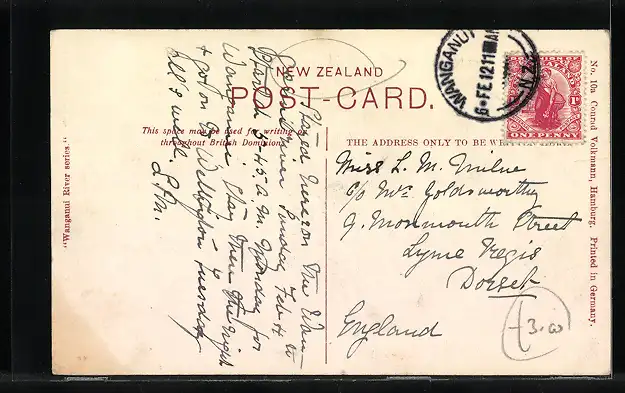 NEW ZEALAND
POST-CARD.
This space may be used for writing on
throughout British Dominions
THE ADDRESS ONLY TO BE
WANGANUI
6 FE 12 11
N.Z.
ONE PENNY
Miss L. M. Milne
c/o Mrs Goldsworthy
9. Monmouth Street
Lyme Regis
Dorset
England
£3.00
Stayed here on the Wan-
Sunday Feb 4 to
Start 5.45 a.m. Monday for
Wanganui, stay there the night
& got on to Wellington Tuesday
All's well.
"Wanganui River series."
No. 10a Conrad Volkmann, Hamburg. Printed in Germany.